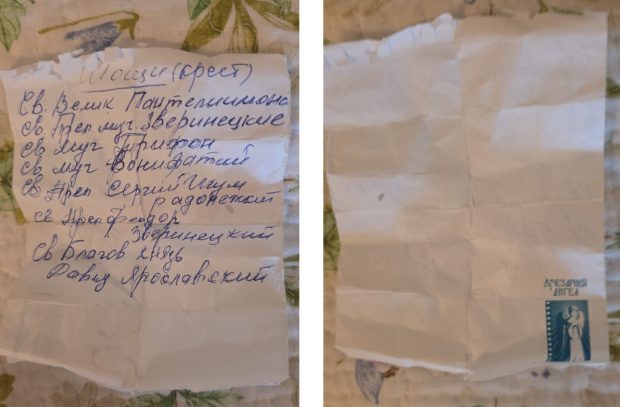 Мощи (крест)
Св. Велик Пантелиимона
Св Преп муч. Зверинецкие
Св муч Трифон
Св муч Вонифатий
Св Преп Сергий Игум
радонежкий
св Преп Феодор
Зверинецкий
Св Благов Князь
Давид Ярославский
АНГЕЛ